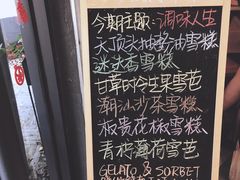 今期主题:调味人生
大顶头抽酱油雪糕
迷迭香雪糕
甘草的今生果雪芭
潮汕沙茶雪糕
椒贵花椒雪糕
青桉薄荷雪芭
GELATO & SORBET